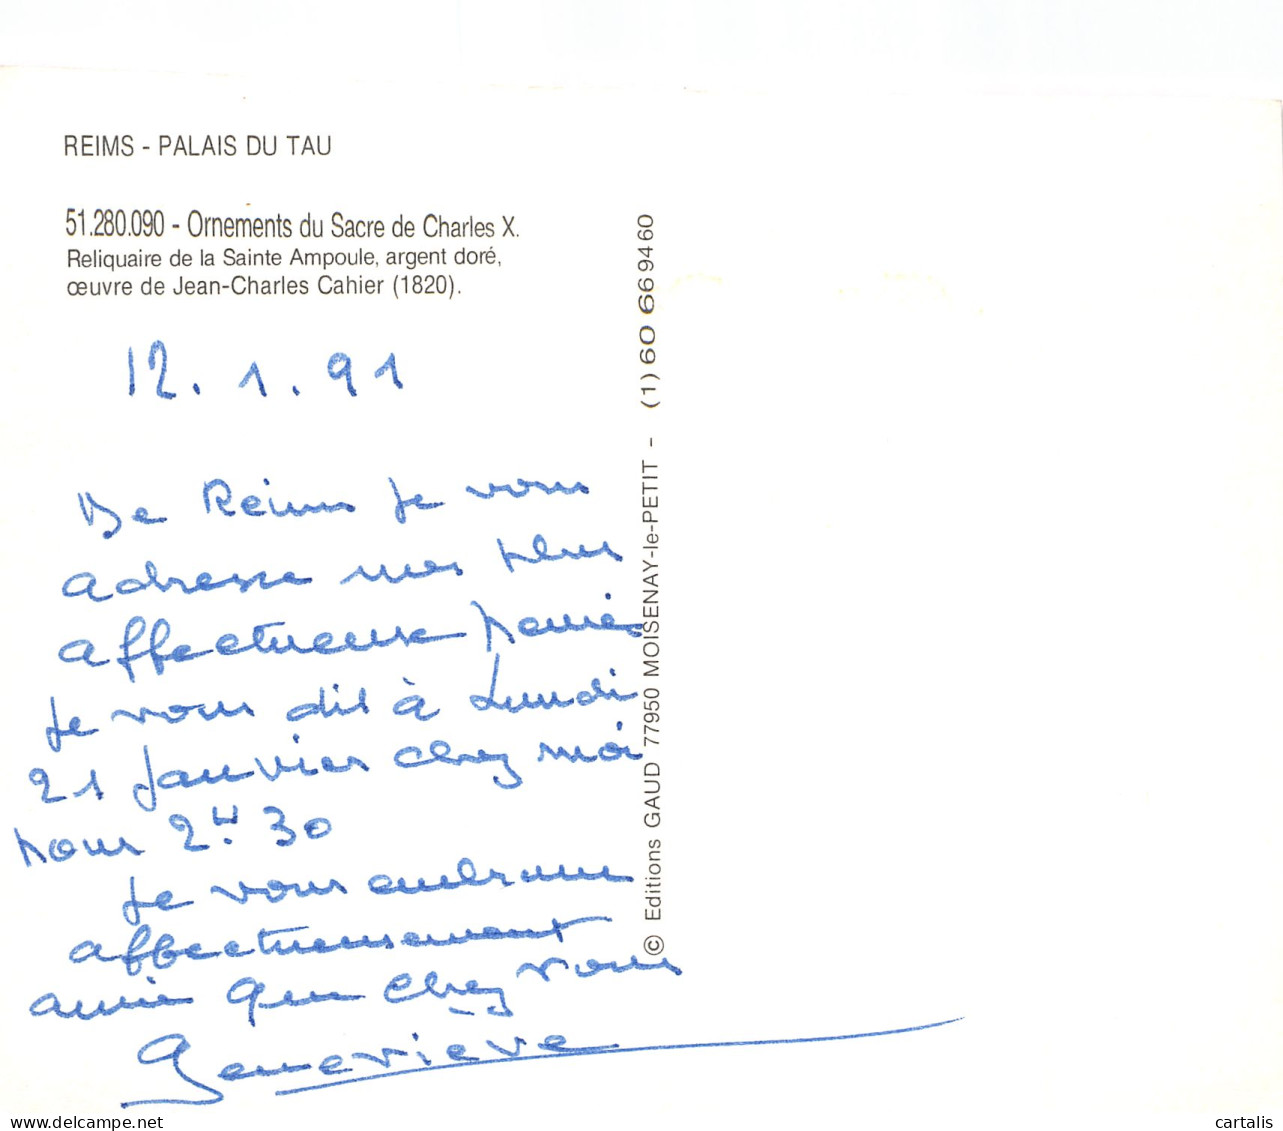 REIMS - PALAIS DU TAU
51.280.090 - Ornements du Sacre de Charles X.
Reliquaire de la Sainte Ampoule, argent doré,
œuvre de Jean-Charles Cahier (1820).
12.1.91
De Reims je vous
adresse mes plus
affectueuse
Je vous dit à Lundi
21 janvier chez moi
pour 2H.30
Je vous embrasse
affectueusement
ainsi que chez vous
Geneviève
© Editions GAUD 77950 MOISENAY-le-PETIT - (1) 60 66 94 60
cartalis
delcampe.net